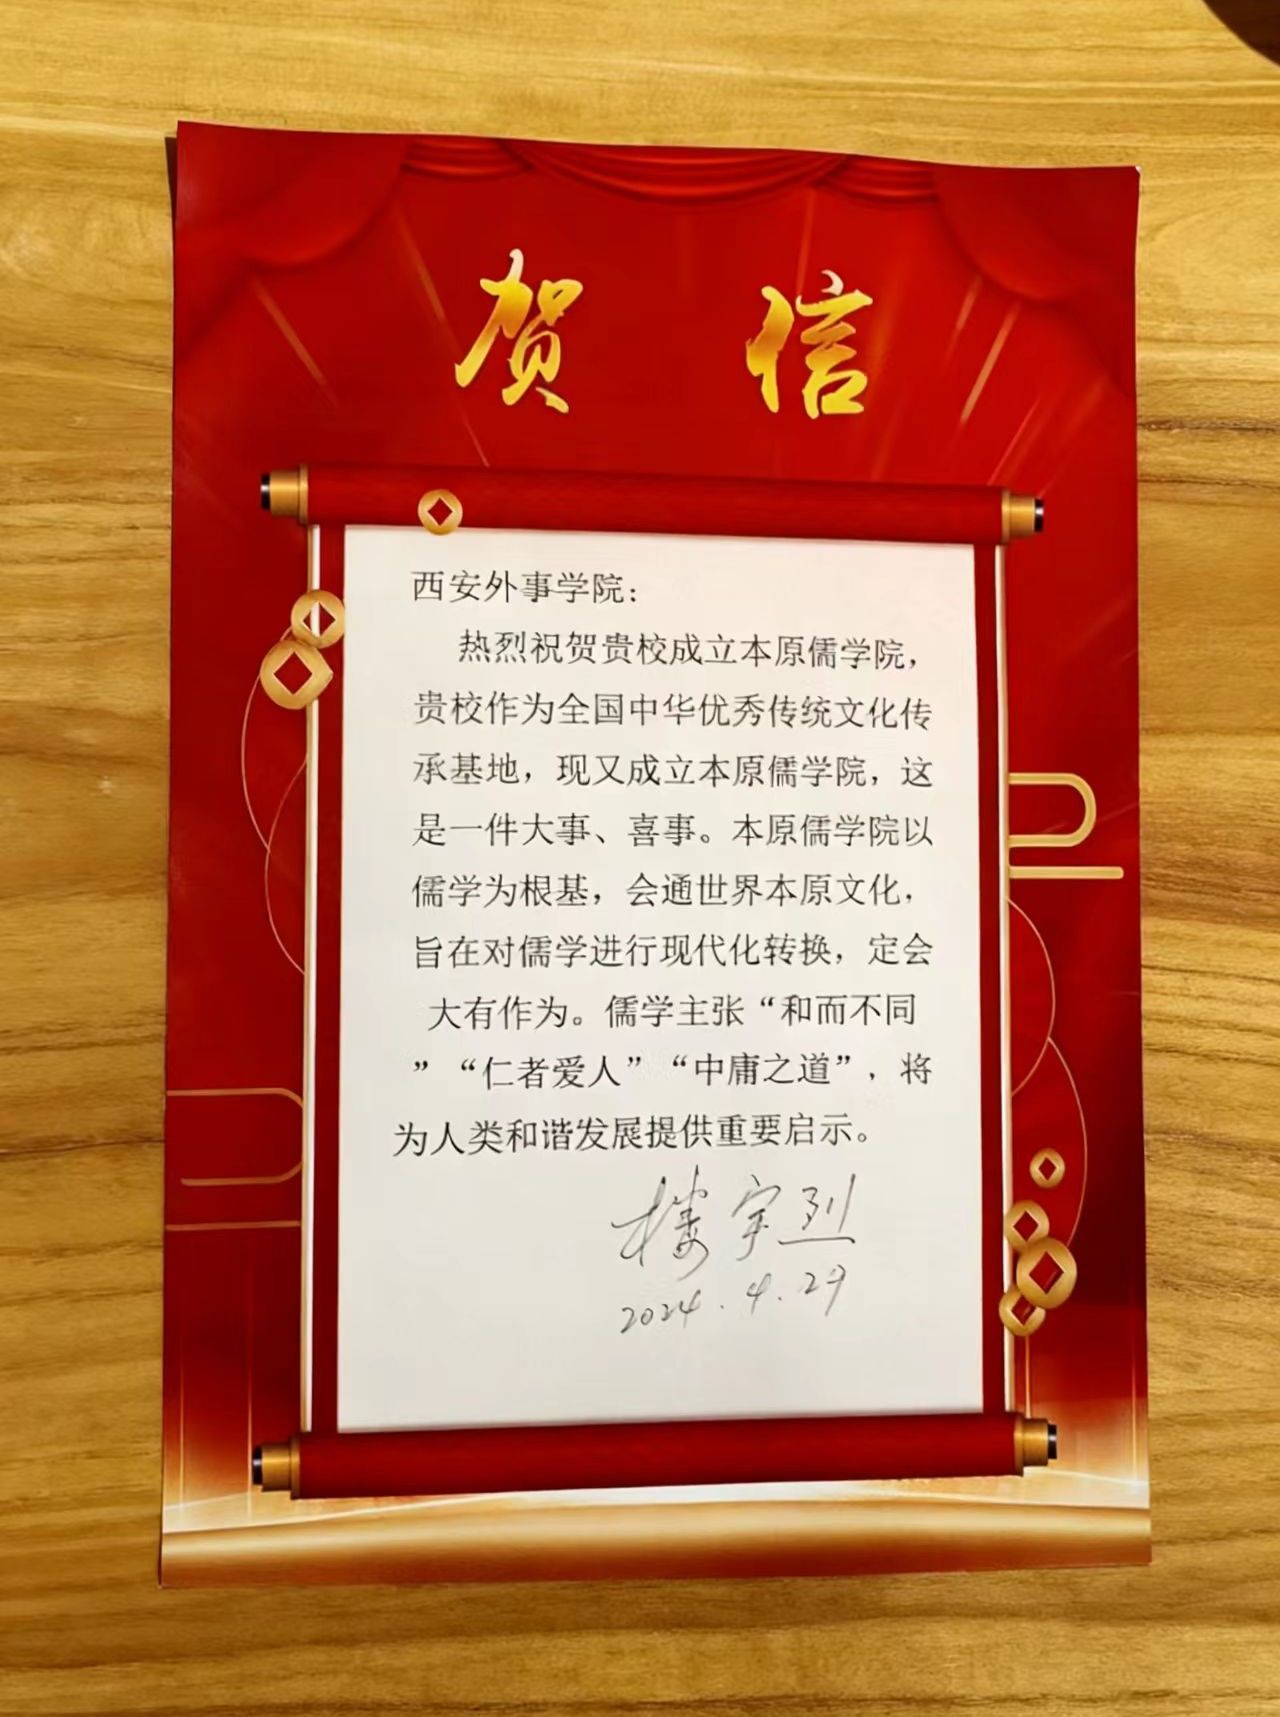 贺 信
西安外事学院：
热烈祝贺贵校成立本原儒学院，
贵校作为全国中华优秀传统文化传
承基地，现又成立本原儒学院，这
是一件大事、喜事。本原儒学院以
儒学为根基，会通世界本原文化，
旨在对儒学进行现代化转换，定会
大有作为。儒学主张“和而不同
”“仁者爱人”“中庸之道”，将
为人类和谐发展提供重要启示。
楼宇烈
2024.4.29